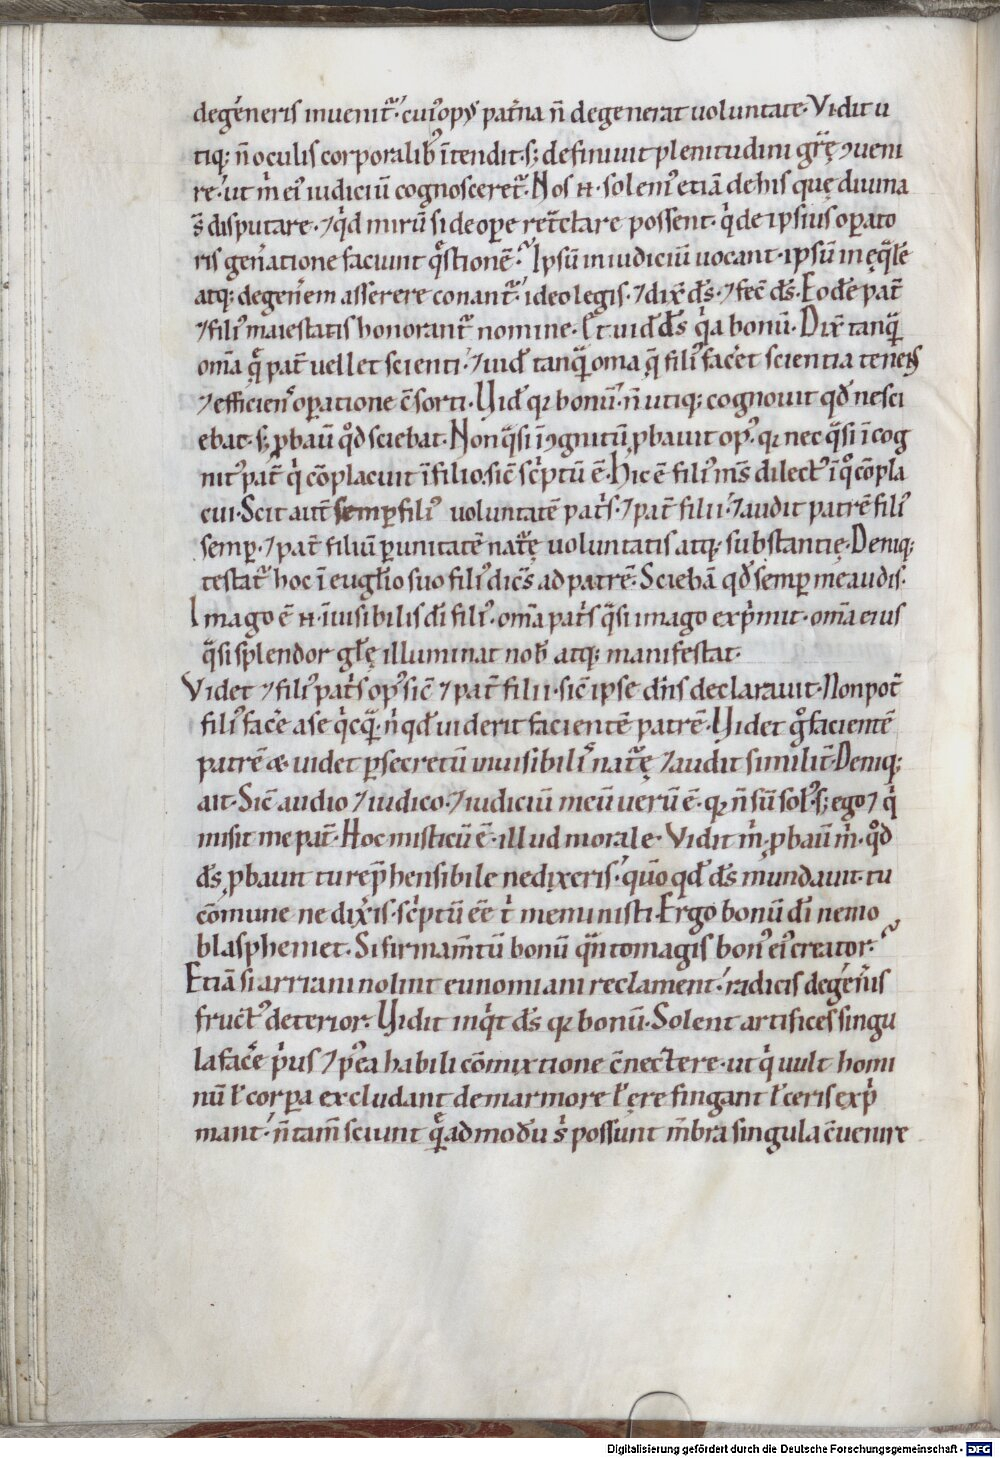 degeneris inuenit᷑. cui᷒ op᷒ pat̾na n̄ degenerat uoluntate. Vidit u
tiq; n̄ oculis corporalib᷒ ītendit. s; definiuit plenitudini gr̄ę ꝯueni
re. ut m̄ ei᷒ iudiciū cognosceret᷑. Nos n̄. solem᷒ etiā dehis quę diuina
s̄ disputare. ⁊ qͥd mirū si de oꝑe ret̄ctare possent. qͥ de ipsius oꝑato
ris gen̾atione faciunt q̄stionē. Ipsū in iudiciū uocant. ipsū inęq̄lē
atq; degen̾em asserere conant᷑. ideo legis. ⁊ dix̄ d̄s. ⁊ fec̄ d̄s. Eodē pat̄
⁊ fili᷒ maiestatis honorant᷑ nomine. Et uid̄ d̄s qͥa bonū. Dix̄ tanq̄
om̄a q̄ pat̄ uellet scienti. ⁊ uid̄ tanq̄ oma q̄ fili᷒ facet̾ scientia teneris
⁊ efficien᷒ oꝑatione c̄sorti. Uid̄ qꝛ bonū. n̄ utiq; cognouit qd̄ nesci
ebat. s; ꝓbau̅ qͦd sciebat. Non q̄si īꝯgnitū ꝓbauit op᷒. qꝛ nec q̄si īcog
nit᷒ pat̄ qͥ cōplacuit ī filio. sic̄ sc̾ptū ē. Hic ē fili᷒ m̄s dilect᷒ ī qͦ cōpla
cui. Scit aut̄ semꝑ fili᷒ uoluntatē pat̾s. ⁊ pat̄ filii. ⁊ audit patrē fili᷒
semꝑ. ⁊ pat̄ filiū ꝑ unitatē nat̄ę uoluntatis atq; substantię. Deniq;
testat᷑ hoc ī eugl̄io suo fili᷒ dic̄s ad patrē. Sciebā qd̄ semꝑ me audis.
Imago ē n̄. īuisibilis dī fili᷒. om̄a pat̾s q̄si imago expͥmit. om̄a eius
q̄si splendor gl̄ę illuminat nob̄ atq; manifestat.
Videt ⁊ fili᷒ pat̾s op᷒ sic̄ ⁊ pat̄ filii. sic̄ ipse dn̄s declarauit. Non pot̄
fili᷒ fac̾e a se qͥcq̄. n̄ qd̄ uiderit facientē patrē. Uidet gͦ facientē
patrē æ. uidet ꝑ secretū inuisibilis nat̄ę ⁊ audit similit̄. Deniq;
ait. Sic̄ audio ⁊ iudico. ⁊ iudiciū meū uerū ē. qꝛ n̄ sū sol᷒. s; ego ⁊ qͥ
misit me pat̄. Hoc misticū ē. illud morale. Vidit m̄. ꝓbau̅ m̄. qͦd
d̄s ꝓbauit tu rep̄hensibile ne dixeris. quō qd̄ d̄s mundauit. tu
cōmune ne dix̾is. sc̾ptū eē tͥ meministi. Ergo bonū dī nemo
blasphemet. Si firmam̄tū bonū qn̄to magis bon᷒ ei᷒ creator.
Etiā si arriani nolint eunomiani reclament. radicis degen̾is
fruct᷒ deterior. Uidit inqͥt d̄s qꝛ bonū. Solent artifices singu
la fac̾e pͥus ⁊ p᷒ea habili cōmixtione c̄nectere. ut qͥ uult homi
nū ł corꝑa excludant de marmore ł ęre fingant ł ceris expͥ
mant. n̄ tam̄ sciunt q̄admodu s̄ possunt m̄bra singula c̄uenire
Digitalisierung gefördert durch die Deutsche Forschungsgemeinschaft - DFG